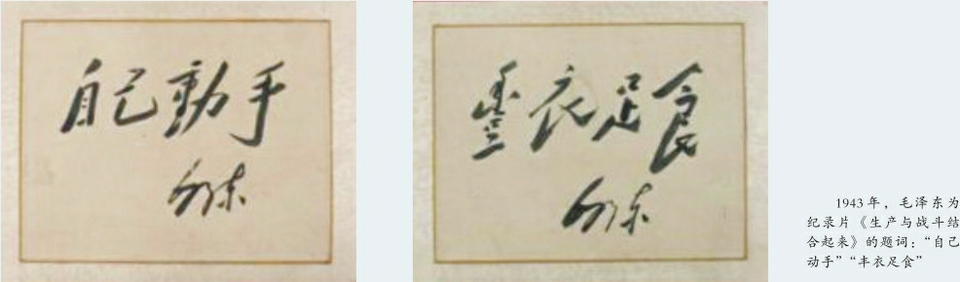 自己動手
澤東
豐衣足食
澤東
1943年，毛泽东为
纪录片《生产与战斗结
合起来》的题词：“自己
动手”“丰衣足食”